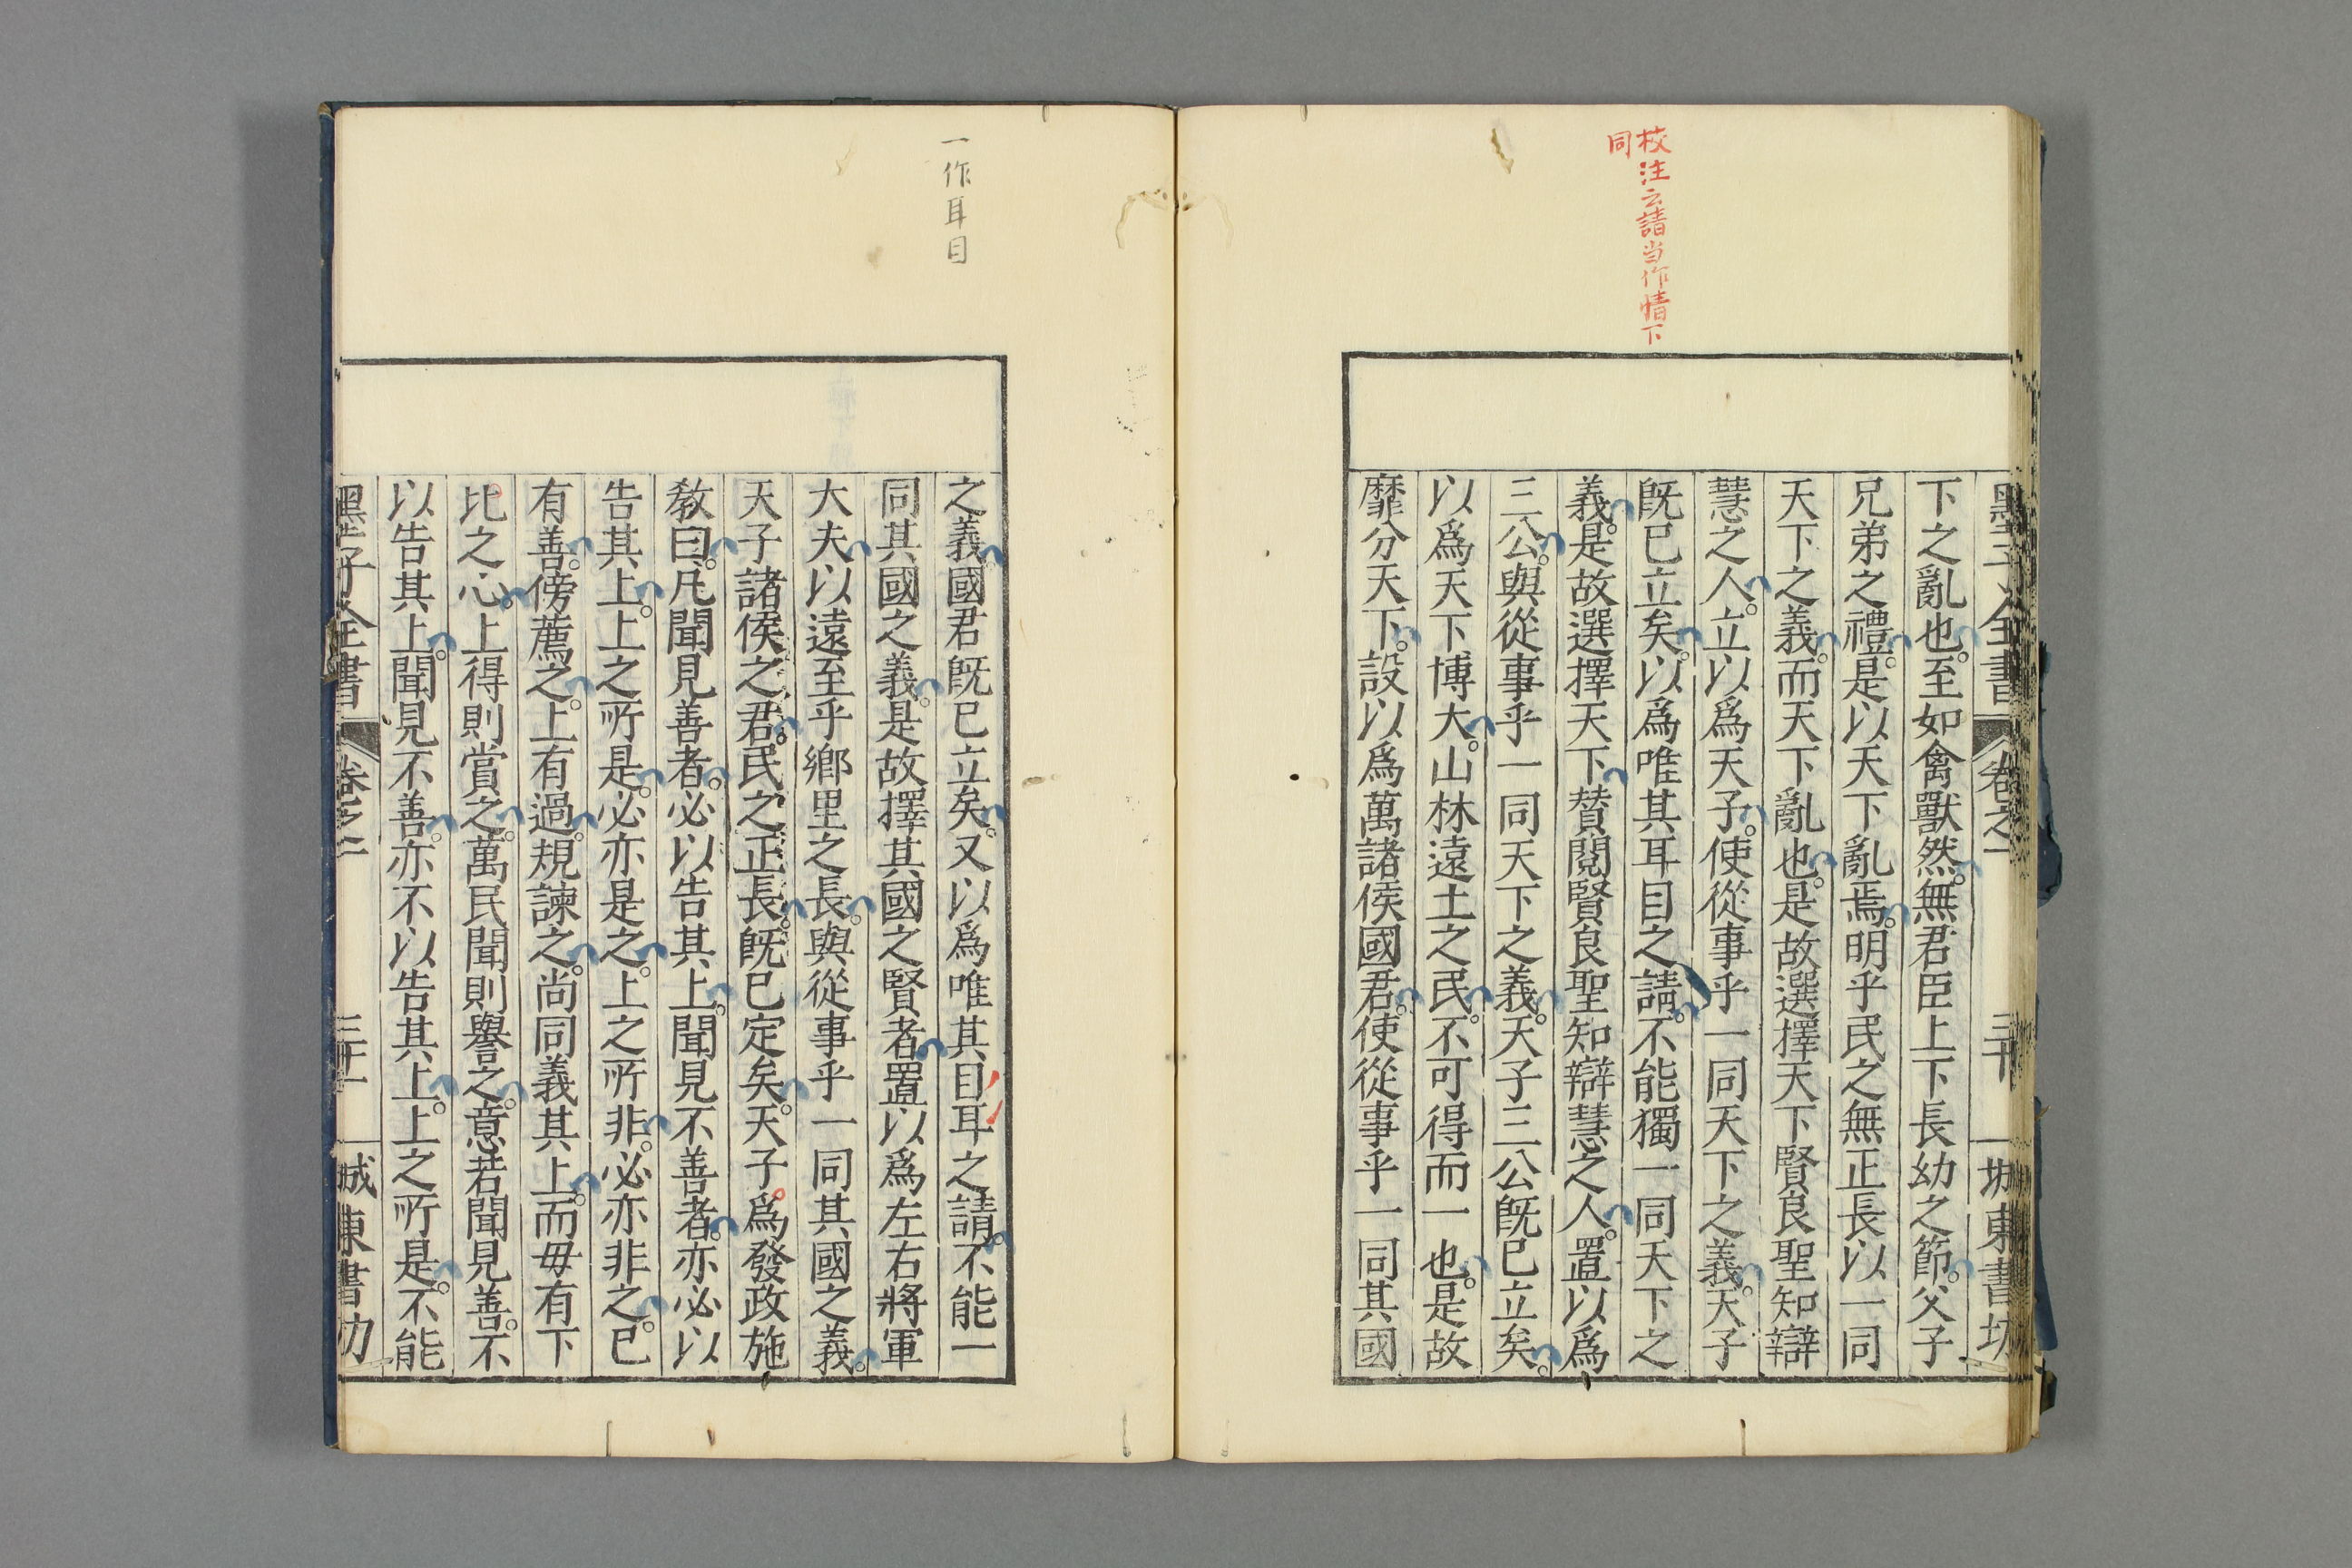 校注云請当作情下
同
墨子全書 卷之二 三十 城東書坊
下之亂也。至如禽獸然。無君臣上下長幼之節。父子
兄弟之禮。是以天下亂焉。明乎民之無正長以一同
天下之義。而天下亂也。是故選擇天下賢良聖知辯
慧之人。立以爲天子。使從事乎一同天下之義。天子
旣已立矣。以爲唯其耳目之請。不能獨一同天下之
義。是故選擇天下賛閱賢良聖知辯慧之人。置以爲
三公。與從事乎一同天下之義。天子三公旣已立矣。
以爲天下博大。山林遠土之民。不可得而一也。是故
靡分天下。設以爲萬諸侯國君。使從事乎一同其國
一作耳目
之義國君旣已立矣。又以爲唯其目耳之請。不能一
同其國之義。是故擇其國之賢者置以爲左右將軍
大夫以遠至乎鄉里之長。與從事乎一同其國之義。
天子諸侯之君。民之正長。旣已定矣。天子爲發政施
敎曰。凡聞見善者。必以告其上。聞見不善者。亦必以
告其上。上之所是。必亦是之。上之所非。必亦非之。已
有善。傍薦之。上有過。規諫之。尚同義其上。而毋有下
比之心。上得則賞之。萬民聞則譽之。意若聞見善。不
以告其上。聞見不善。亦不以告其上。上之所是。不能
墨子全書 卷之二 三十一 城東書坊